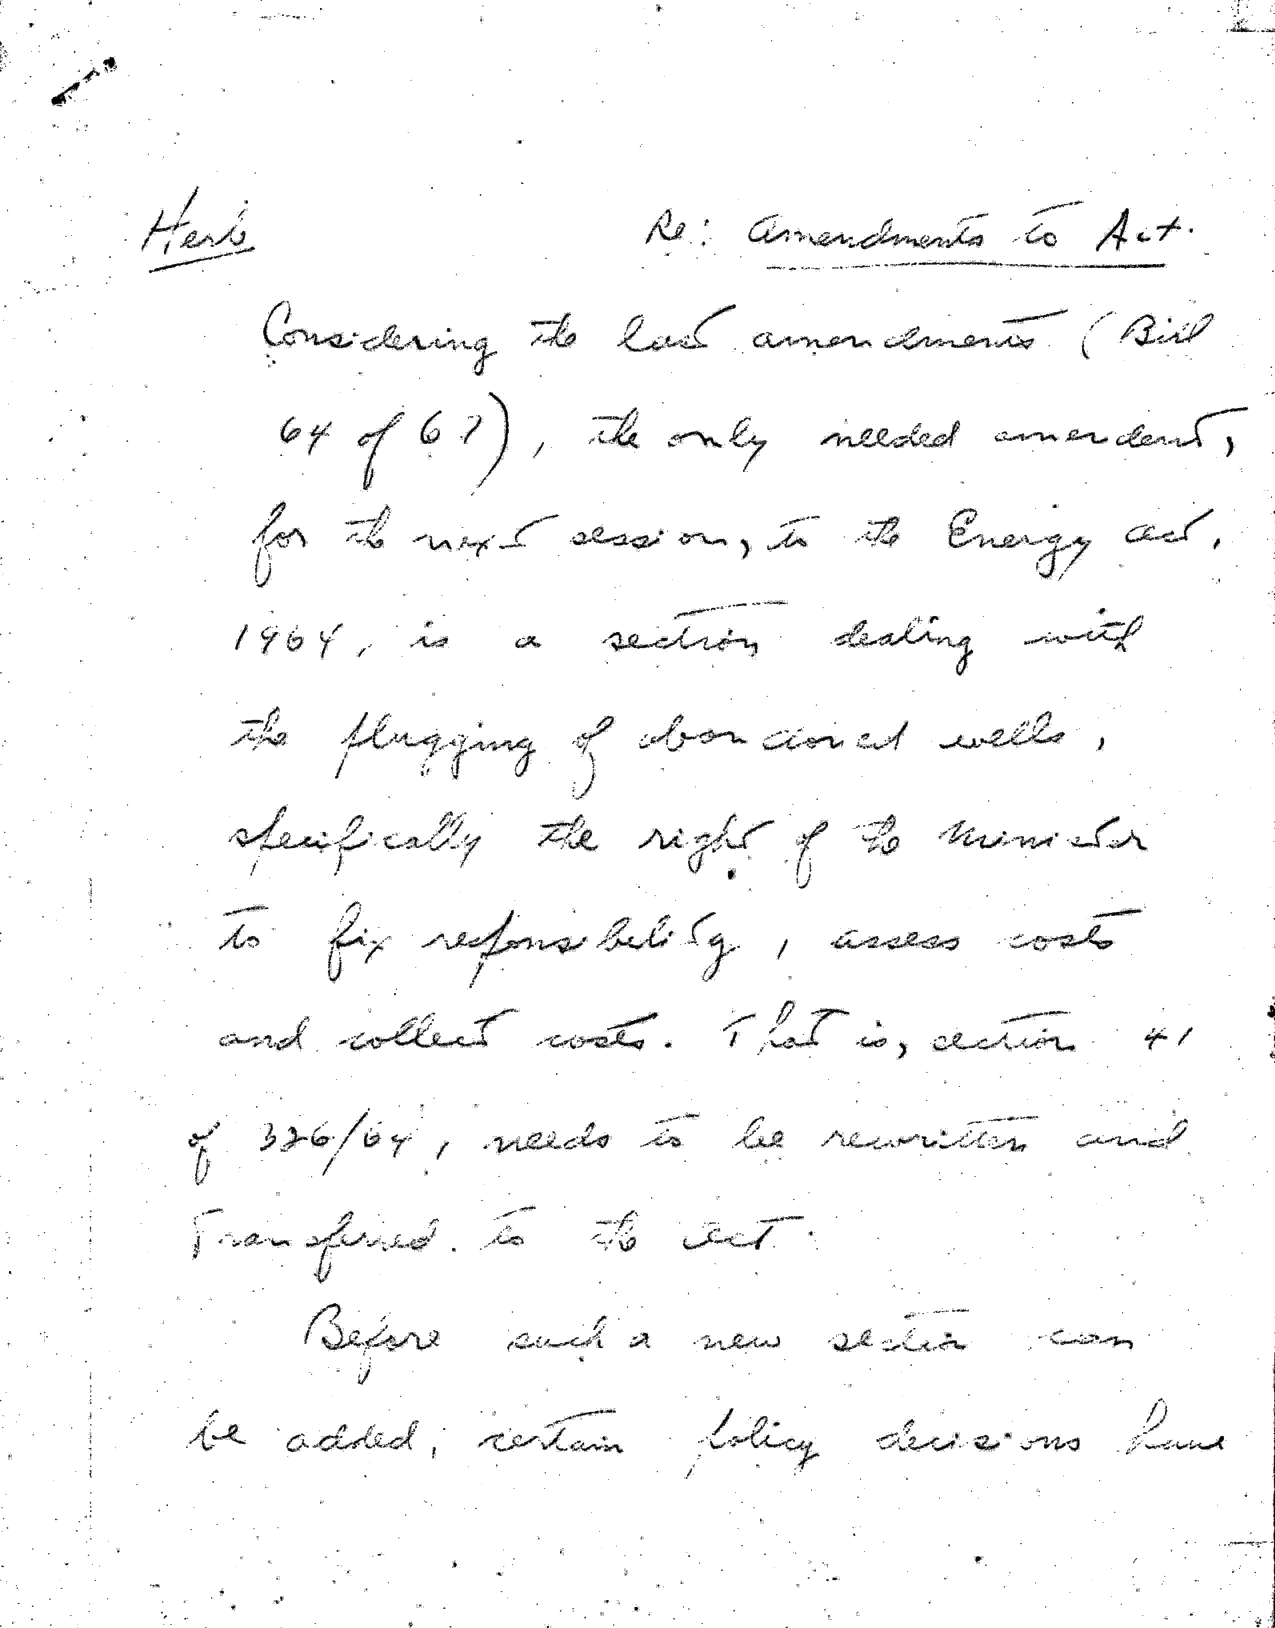 Herb Re: Amendments to Act.
Considering the last amendments (Bill
64 of 67), the only needed amendent,
for the next session, to the Energy Act,
1964, is a section dealing with
the plugging of abandoned wells,
specifically the right of the Minister
to fix responsibility, assess costs
and collect costs. That is, section 41
of 326/64, needs to be rewritten and
Transferred to the Act.
Before such a new section can
be added, certain policy decisions have